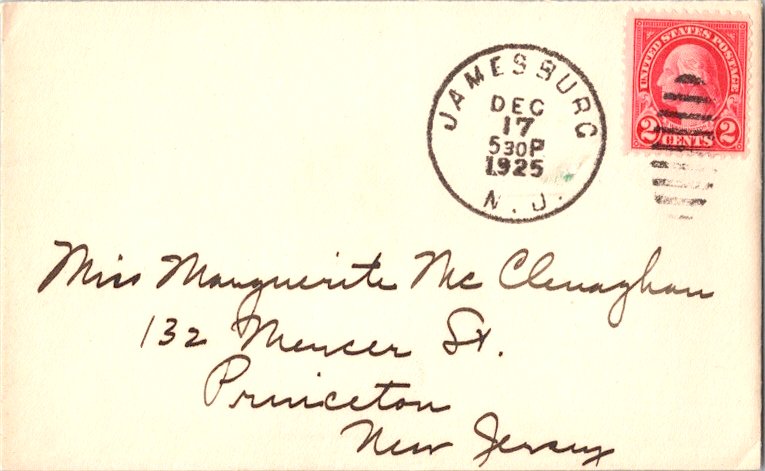 JAMESBURG
DEC
17
530P
1925
N. J.
UNITED STATES POSTAGE
2 CENTS 2
Miss Marguerite Mc Clenaghan
132 Mercer St.
Princeton
New Jersey